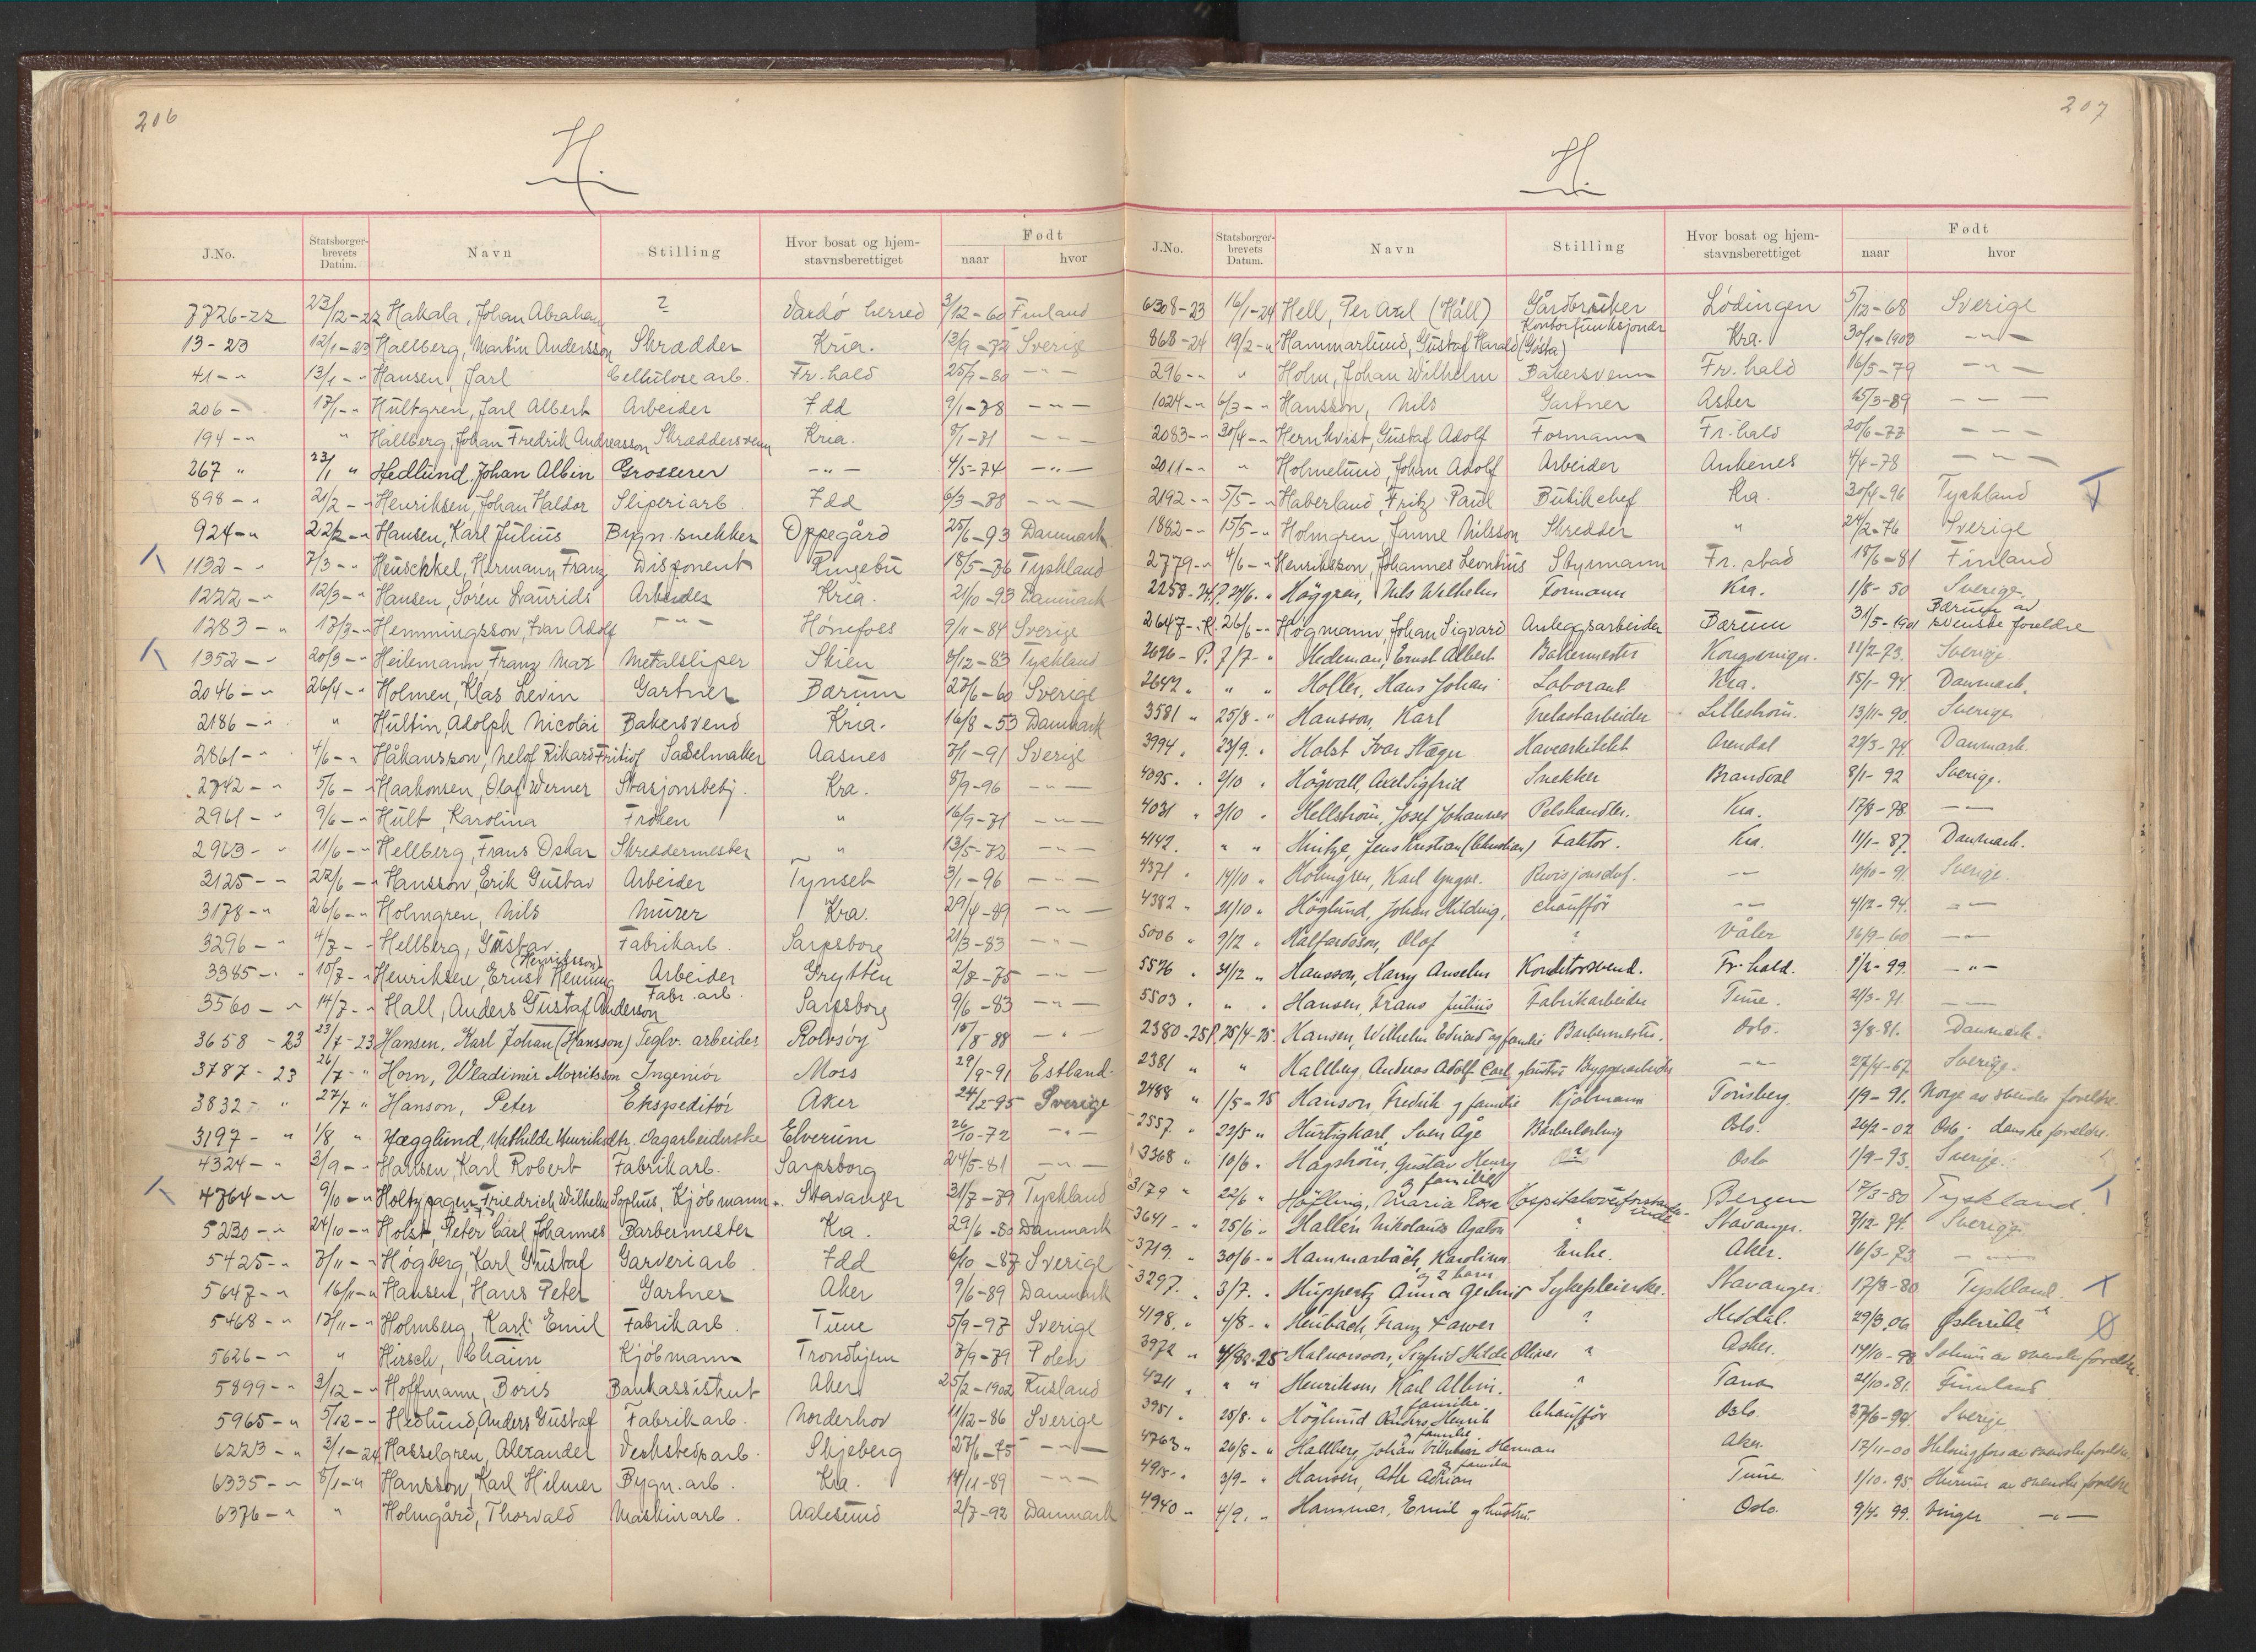 206
H.
J.No. Statsborger-brevets Datum. Navn Stilling Hvor bosat og hjem-stavnsberettiget Født naar hvor
7726-22 23/12-22 Hakala, Johan Abraham ? Vardø herred 3/12-60 Finland
13-23 12/1-23 Hallberg, Martin Andersson Skrædder Kria. 13/9-72 Sverige
41-" 13/1-" Hansen, Jarl Cellulose arb. Fr.hald 25/7-80 -"-
206- 17/1-" Hultgren, Jarl Albert Arbeider Idd 9/1-78 -"-
194-" " Hallberg, Johan Fredrik Andreasson Skræddersvenn Kria. 9/1-71 -"-
267 " 23/1 " Hedlund, Johan Albin Grosserer -"- 4/5-74 -"-
898-" 21/2-" Henriksen, Johan Haldor Sliperiarb. Idd 6/3-88 -"-
924-" 22/2-" Hansen, Karl Julius Bygn.snekker Oppegård 25/6-93 Danmark
1132-" 7/3-" Heuschkel, Hermann Franz Disponent Ringebu 18/5-76 Tyskland
1222-" 12/3-" Hansen, Søren Laurids Arbeider Kria. 21/10-93 Danmark
1283-" 17/3-" Hemmingsson, Ivar Adolf -"- Hønefoss 9/11-84 Sverige
1352-" 20/3-" Heilemann, Franz Max Metalsliper Skien 8/12-83 Tyskland
2046-" 26/4-" Holmen, Klas Levin Gartner Bærum 27/6-60 Sverige
2186-" " Hultin, Adolph Nicolai Bakersvend Kria. 16/8-53 Danmark
2861-" 4/6-" Håkansson, Nelof Rikard Fritiof Sadelmaker Aasnes 7/1-91 Sverige
2742-" 5/6-" Haakonsen, Olaf Werner Stasjonsbetj. Kra. 8/9-96 -"-
2961-" 9/6-" Hult, Karolina Frøken " 16/9-71 -"-
2963-" 11/6-" Hellberg, Frans Oskar Skreddermester " 13/5-72 -"-
3125-" 22/6-" Hansson, Erik Gustav Arbeider Tynset 3/1-96 -"-
3178-" 26/6-" Holmgren, Nils Murer Kra. 29/4-89 -"-
3296-" 4/7-" Hellberg, Gustav Fabrikarb. Sarpsborg 21/3-83 -"-
3385-" 10/7-" Henriksen, Ernst Hening (Henriksson) Arbeider Grytten 2/8-75 -"-
3560-" 14/7-" Hall, Anders Gustaf Anderson Fabr.arb. Sarpsborg 9/6-83 -"-
3658-23 23/7-23 Hansen, Karl Johan (Hansson) Teglv. arbeider Rolvsøy 15/8-88 -"-
3787-23 26/7-" Horn, Wladimir Morritsson Ingeniør Moss 29/9-91 Estland.
3832-" 27/7 " Hanson, Peter Ekspeditør Aker 24/2-95 Sverige
3197-" 1/8 " Hægglund, Mathilde Henriksdtr. Dagarbeiderske Elverum 26/10-72 -"-
4324-" 3/9-" Hansen, Karl Robert Fabrikarb. Sarpsborg 24/5-81 -"-
4764-" 9/10-" Holtzpagen, Friedrich Wilhelm Sophus, Kjøbmann. Stavanger 31/7-79 Tyskland
5230-" 24/10-" Holst, Peter Carl Johannes Barbermester Ka. 29/6-80 Danmark
5425-" 8/11-" Høgberg, Karl Gustaf Garveriarb Idd 6/10-87 Sverige
5647-" 16/11-" Hansen, Hans Peter Gartner Aker 9/6-89 Danmark
5468-" 13/11-" Holmberg, Karl Emil Fabrikarb. Tune 5/9-97 Sverige
5626-" " Hirsch, Chaim Kjøbmann Trondhjem 7/9-79 Polen
5899-" 3/12-" Hoffmann, Boris Bankassistent Aker 25/2-1902 Rusland
5965-" 5/12-" Hedlund, Anders Gustaf Fabrikarb. Norderhov 11/12-86 Sverige
6223-" 3/1-24 Hasselgren, Alexander Verkstedsarb. Skjeberg 27/6-75 -"-
6335-" 8/1-" Hansson, Karl Hilmer Bygn.arb. Kra. 14/11-89 -"-
6376-" " Holmgård, Thorvald Maskinarb. Aalesund 2/7-92 Danmark
207
H.
J.No. Statsborger-brevets Datum. Navn Stilling Hvor bosat og hjem-stavnsberettiget Født naar hvor
6308-23 16/1-24 Hell, Per Axel (Häll) Gårdbruker Lødingen 5/12-68 Sverige
868-24 19/2-" Hammarlund, Gustaf Harald (Gösta) Kontorfunksjonær Kra. 30/1-1903 -"-
296-" " Holm, Johan Wilhelm Bakersvenn Fr.hald 16/5-79 -"-
1024-" 6/3-" Hansson, Nils Gartner Asker 15/3-89 -"-
2083-" 30/4-" Hernkvist, Gustaf Adolf Formann Fr.hald 20/6-77 -"-
2011-" " Holmelund, Johan Adolf Arbeider Ankenes 4/4-78 -"-
2192-" 5/5-" Haberland, Fritz Paul Butikchef Kra. 30/4-96 Tyskland
1882-" 15/5-" Holmgren, Janne Nilsson Skredder " 24/2-76 Sverige
2779-" 4/6-" Henriksson, Johannes Leontius Styrmann Fr.stad 18/6-81 Finland
2258-24P. 24/6-" Häggren, Nils Wilhelm Formann Kra. 1/8-50 Sverige.
2647-P. 26/6-" Högmann, Johan Sigvard Anleggsarbeider Bærum 31/5-1901 Bærum av svenske foreldre
2676-P. 7/7-" Hedeman, Ernst Albert Bakermester Kongsvinger. 11/2-73. Sverige
2642 " " " Holler, Hans Johan Laborant Kra. 15/1-94. Danmark.
3581 " 25/8-" Hansson, Karl Trelastarbeider Lillestrøm. 13/11-90. Sverige
3994 . 23/9. " Holst Ivar Stæger Havearkitekt Arendal 23/3-74. Danmark.
4095. . 2/10 " Högvall, Axel Sigfrid Snekker Brandval 8/1-92 Sverige.
4031 " 3/10 " Hellström, Josef Johannes Pelshandler. Kra. 17/8-78. -"-
4142. " " Hintze, Jens Kristian (Christian) Faktor. Kra. 11/1-87. Danmark.
4371 " 14/10 " Holmgren, Karl Yngve. Revisjonschef. -"- 10/10-91 Sverige.
4382 " 21/10 " Höglund, Johan Hilding, chauffør -"- 4/12-94. -"-
5006 " 9/12 " Halfardsson, Olof ? Våler 16/9-60 -"-
5576 " 31/12 " Hansson, Harry Anselm Konditorsvend. Fr.hald. 1/2-99. -"-
5503 . " " Hansen, Frans Julius Fabrikarbeider Tune. 2/3-71. -"-
2380-25P. 25/4-25. Hansen, Wilhelm Edvard og familie Barbermester. Oslo. 3/8-81. Danmark.
2381 " " Hallberg, Andreas Adolf Carl og hustru Byggearbeider -"- 27/4-67. Sverige.
2488 " 1/5-25 Hanson, Fredrik og familie Kjølmann Tønsberg. 1/9-91. Norge av svenske foreldre.
2557. " 22/5 " Hurtigkarl, Sven Åge Barberlærling Oslo. 26/2-02 Oslo. danske foreldre.
3368 " 10/6. Hagström, Gustav Henry og familie ? Oslo 1/9-93. Sverige.
3179 " 22/6 " Höfling, Maria Rosa Hospitalsforstanderinde Bergen 17/3-80 Tyskland.
3641 - " 25/6- Hallén Nikolaus Agaton ? Stavanger. 7/12-74. Sverige
3719. " 30/6-" Hammarbäck, Karolina og 2 barn Enke. Aker. 16/3-73. -"-
3297. 3/7. " Huppertz Anna Gertrud Sykepleierske. Stavanger. 17/8-80 Tyskland.
4198. " 4/8-" Heubach, Franz Xaver ? Hisdal. 29/3.06 Østerrike
3972 " 4/8-25 Halvorsson, Sigfrid Hilde Oliver " Asker. 14/10-98 av svenske foreldre.
4211 " " " Henriksen, Karl Albin. og familie ? Tana 21/10-81. Finnland
3951 . 25/8. " Höglund Anders Henrik og familie Chauffør Oslo. 27/6-94. Sverige
4763 " 26/8-" Hallberg, Johan Wilhelm Herman og familie Aker. 17/11-00 Helsingfors av svenske foreldre.
4915-. 3/9-" Hansen, Atle Adrian Tune 1/10-95. Hurum av svenske foreldre
4940- 4/9. " Hammer, Emil og hustru. Oslo. 9/4-99. Vinger -"-